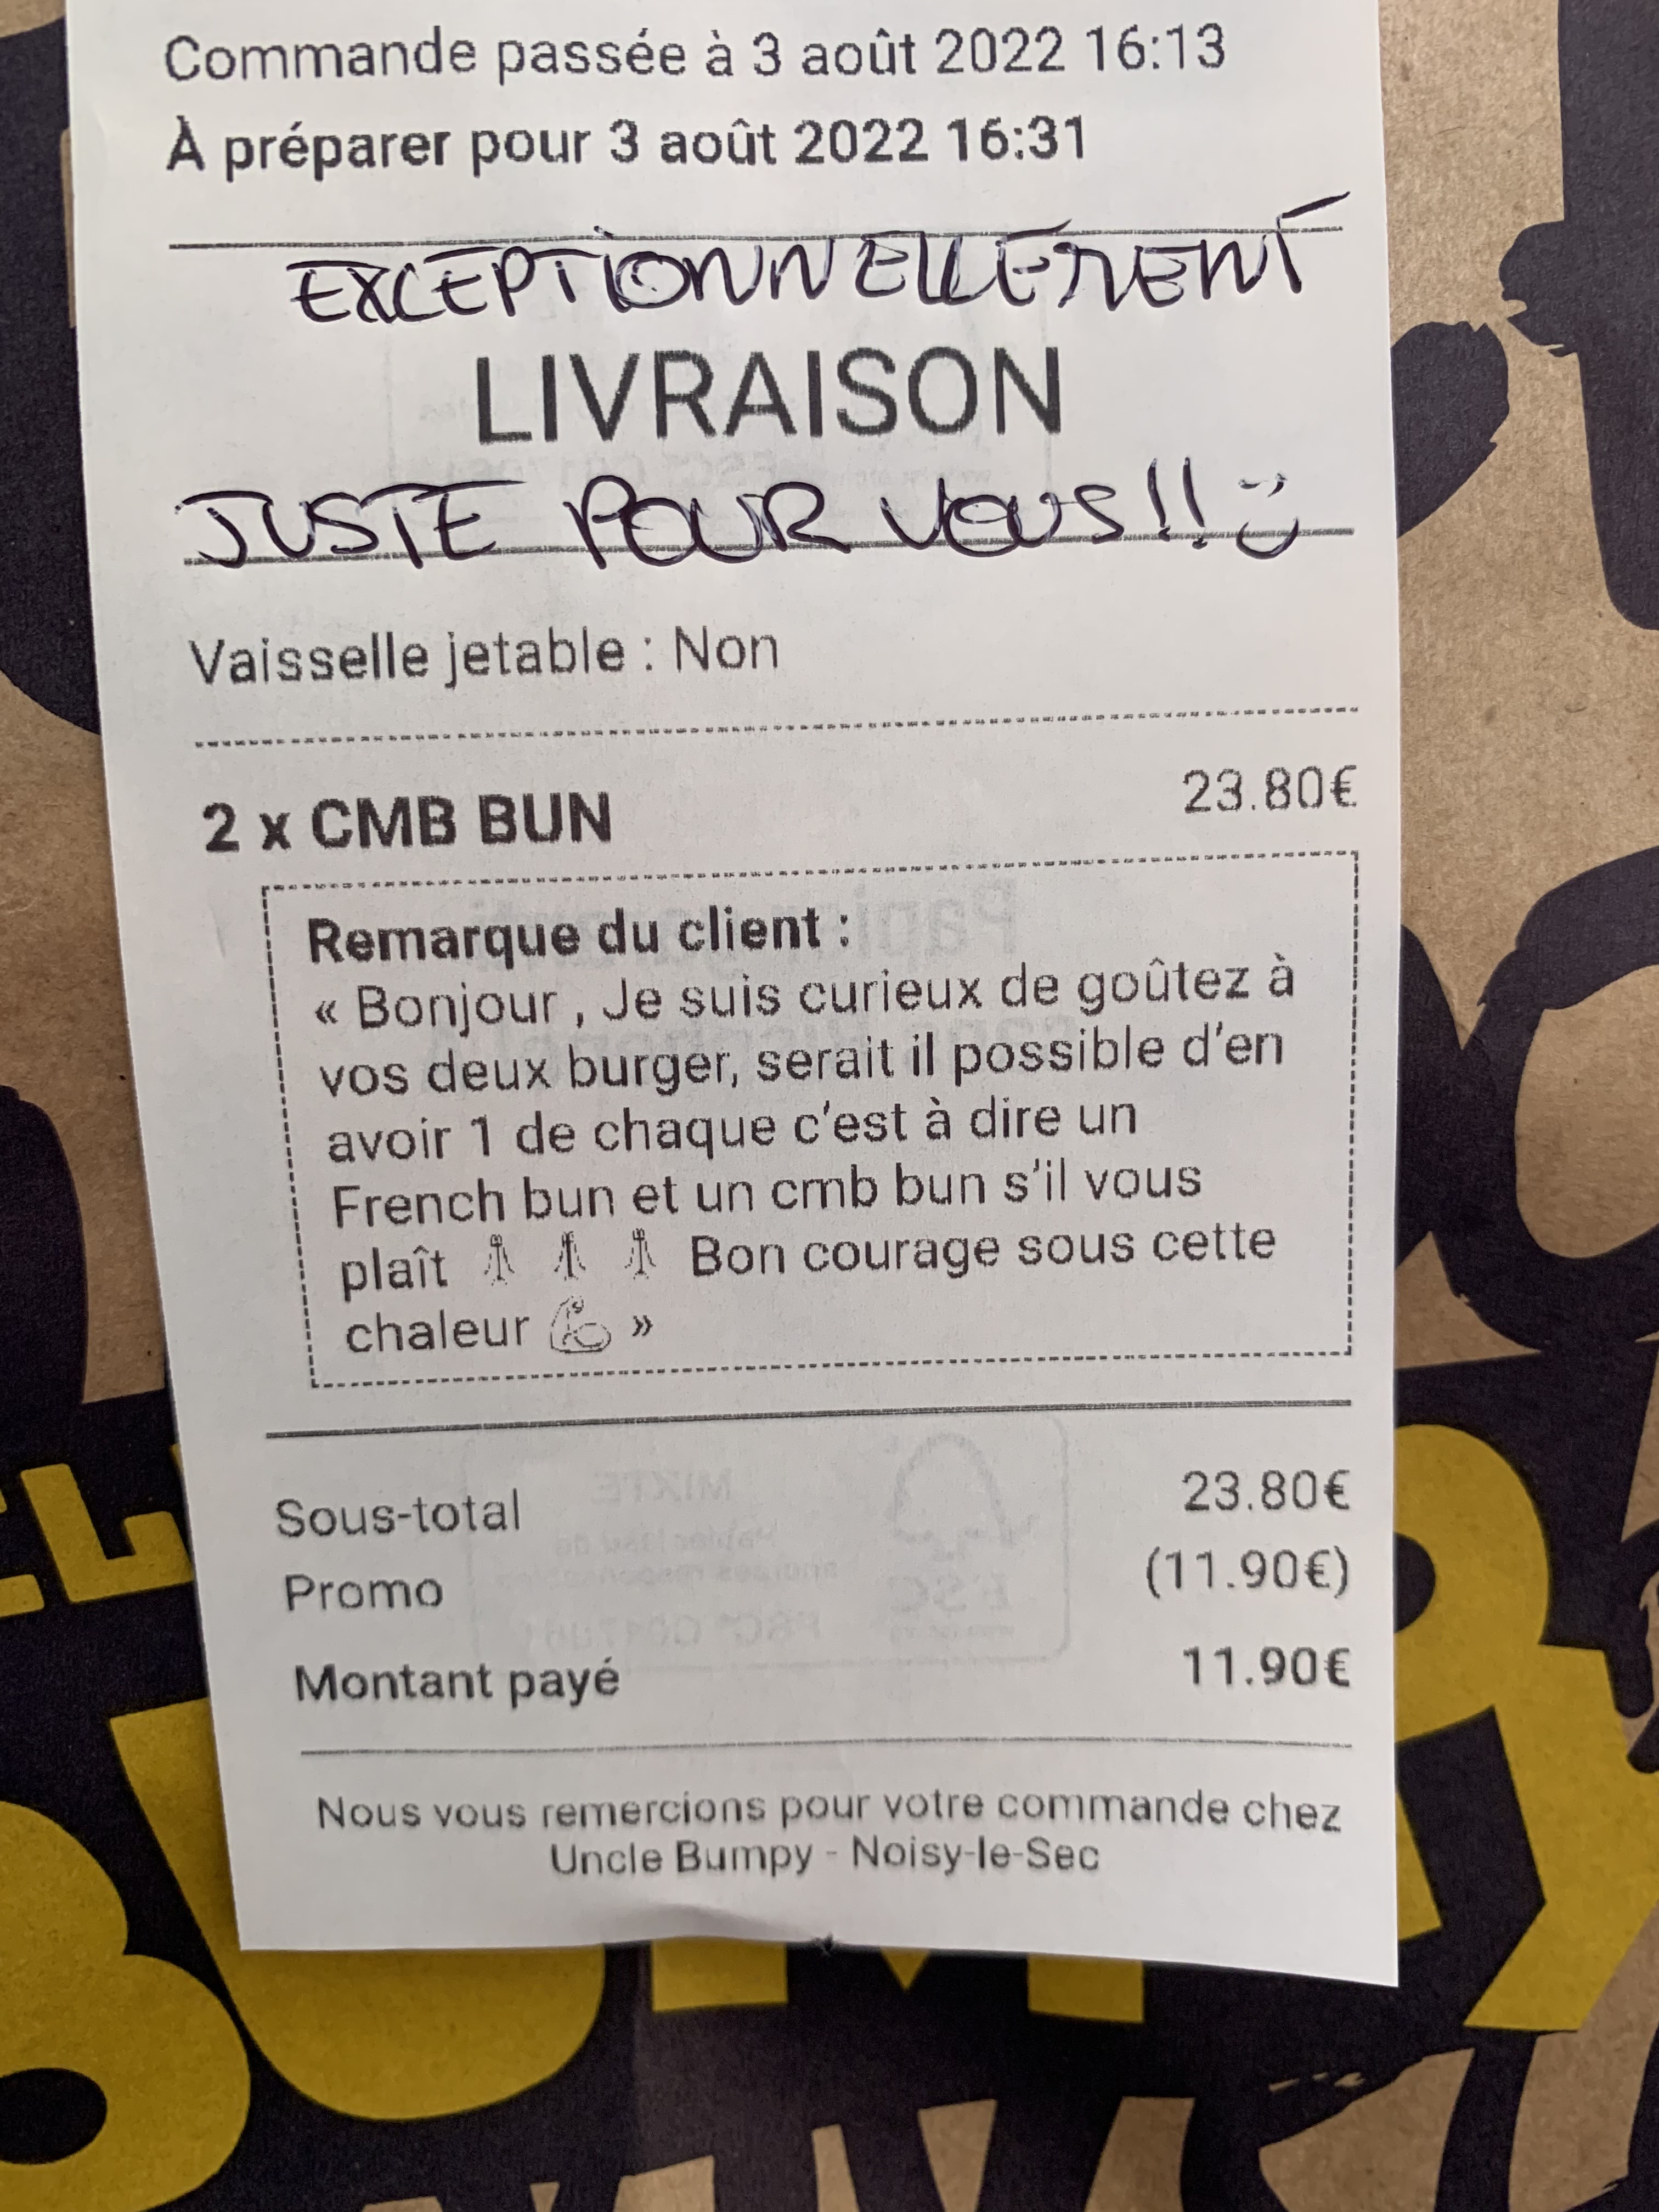 Commande passée à 3 août 2022 16:13
À préparer pour 3 août 2022 16:31
EXCEPTIONNELLEMENT
LIVRAISON
JUSTE POUR VOUS!! :)
Vaisselle jetable : Non
2 x CMB BUN 23.80€
Remarque du client :
« Bonjour , Je suis curieux de goûtez à
vos deux burger, serait il possible d'en
avoir 1 de chaque c'est à dire un
French bun et un cmb bun s'il vous
plaît 🙏 🙏 🙏 Bon courage sous cette
chaleur 💪 »
Sous-total 23.80€
Promo (11.90€)
Montant payé 11.90€
Nous vous remercions pour votre commande chez
Uncle Bumpy - Noisy-le-Sec